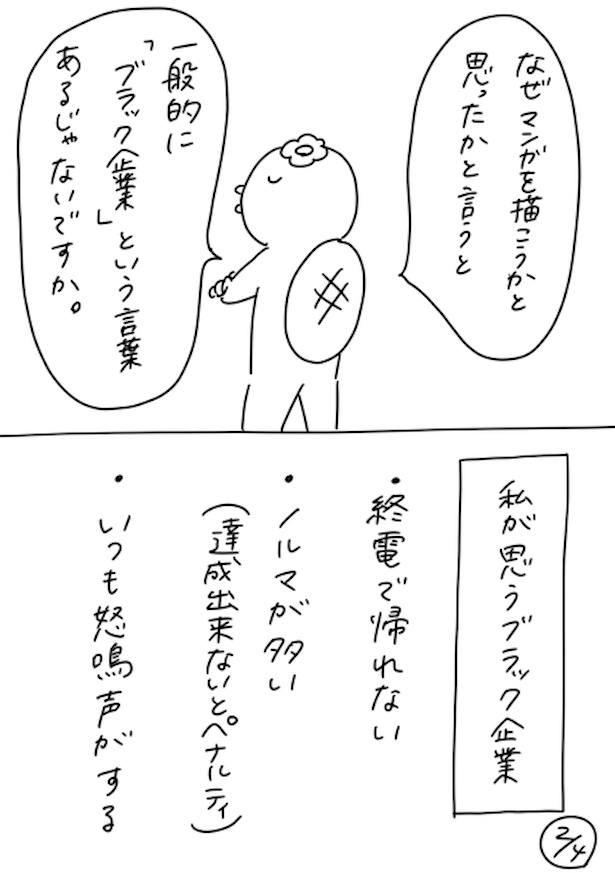 なぜマンガを描こうかと
思ったかと言うと
一般的に
「ブラック企業」という言葉
あるじゃないですか。
私が思うブラック企業
・終電で帰れない
・ノルマが多い
(達成出来ないとペナルティ)
・いつも怒鳴声がする
2/4